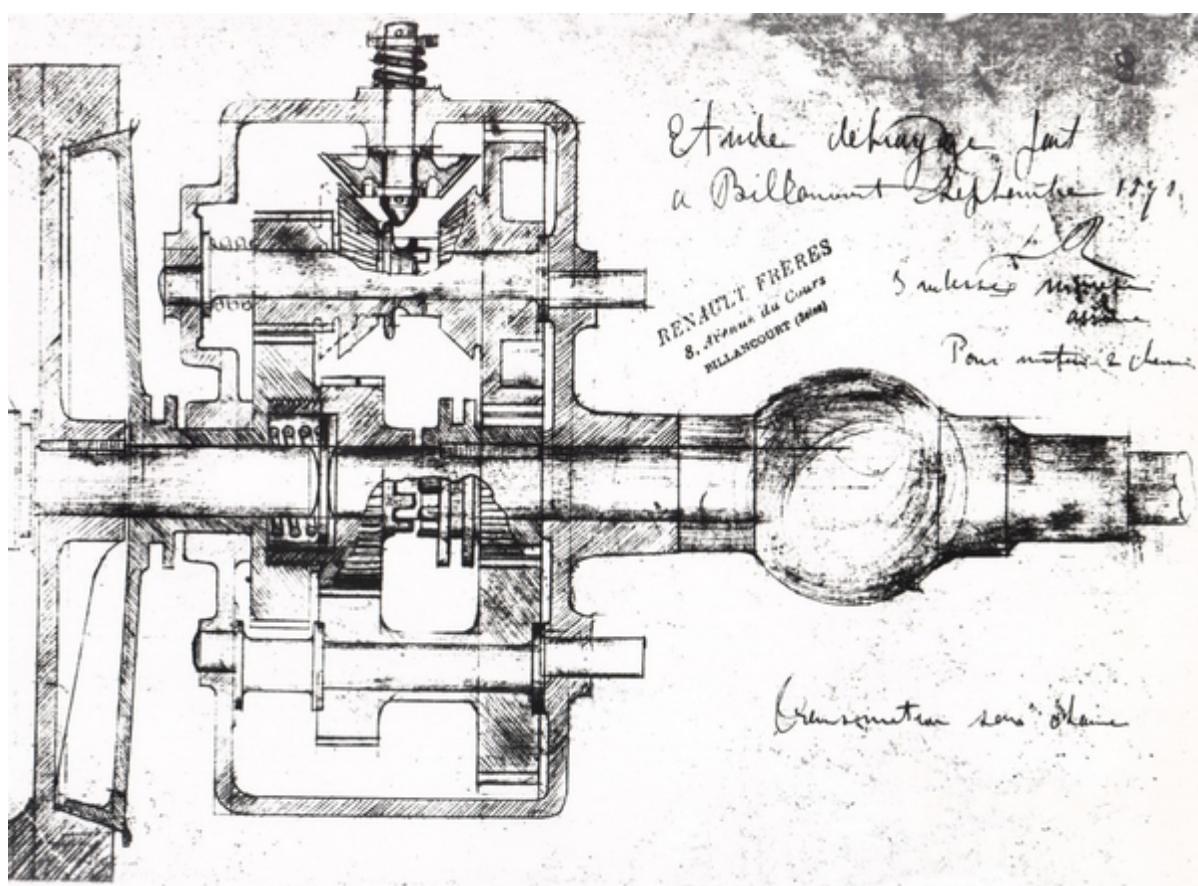 Etude débrayage fait
a Billancourt Septembre 1891
RENAULT FRÈRES
8, Avenue du Cours
BILLANCOURT (Seine)
3 vitesses
Pour moteur 2 chevx
transmission sans chaine